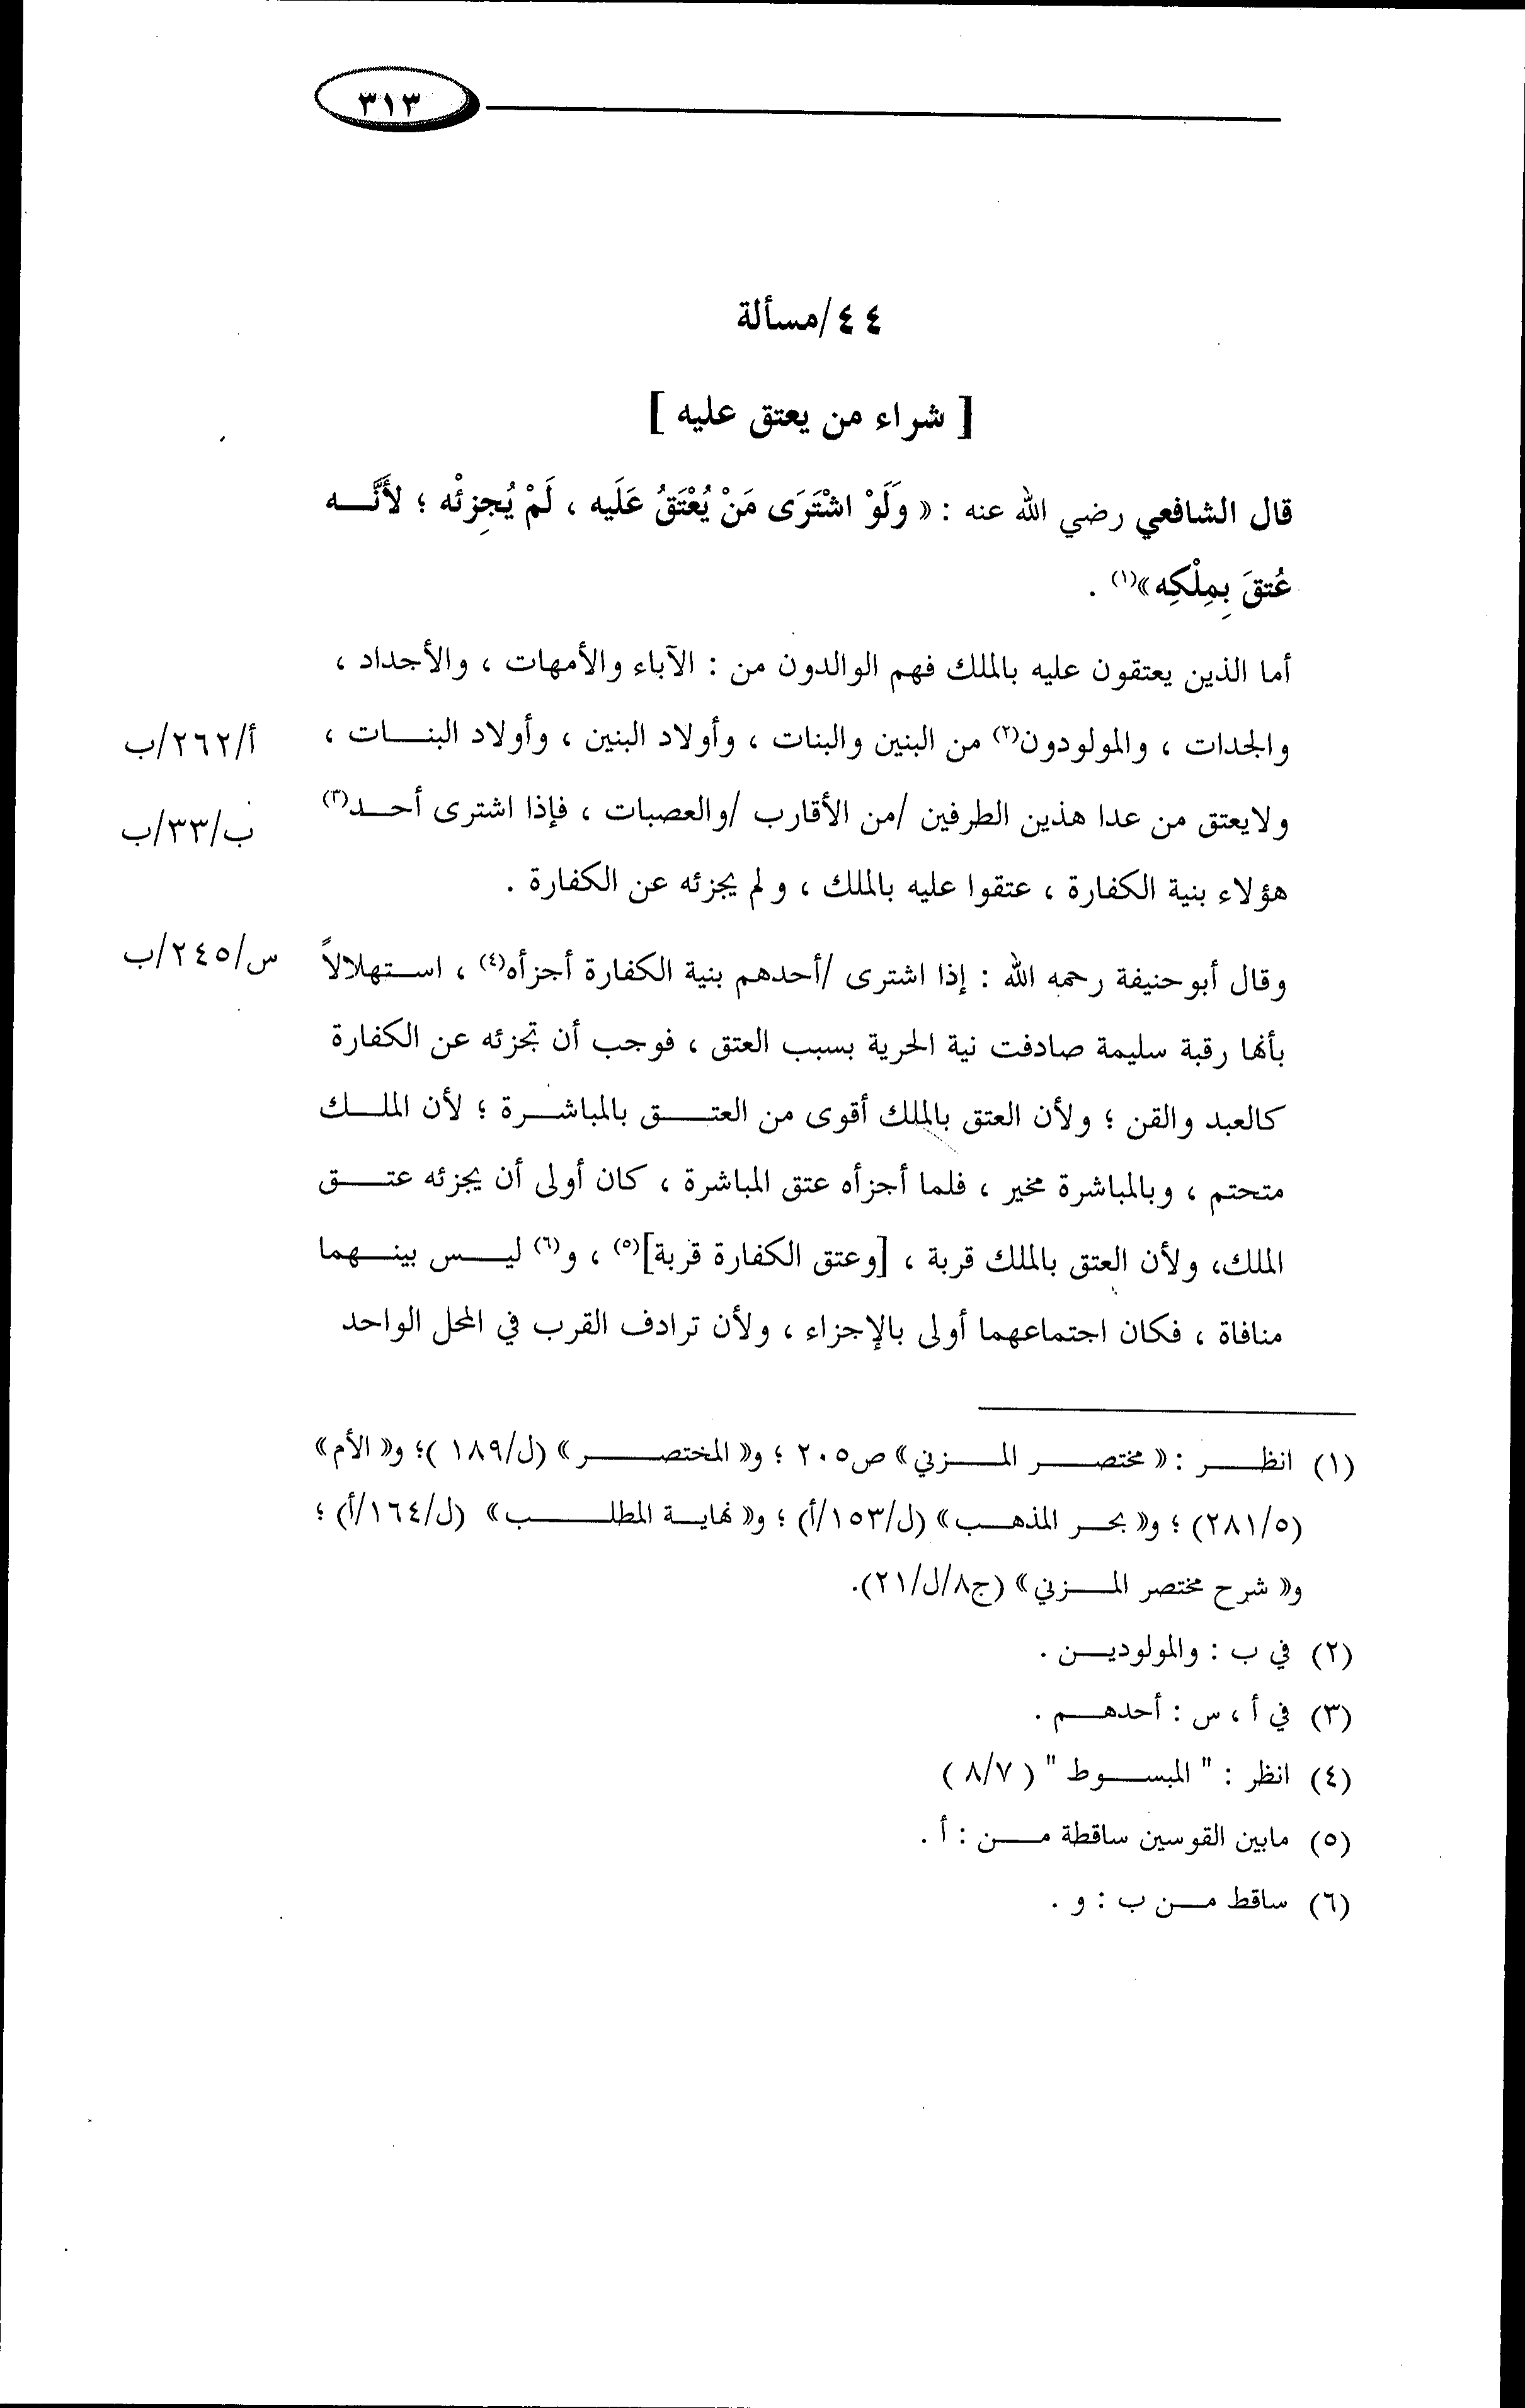 ٣١٣
٤٤/مسألة
[ شراء من يعتق عليه ]
قال الشافعي رضي الله عنه : « وَلَوْ اشْتَرَى مَنْ يُعْتَقُ عَلَيه ، لَمْ يُجِزئْه ؛ لأَنَّه
عُتقَ بِمِلْكِه»(١) .
أما الذين يعتقون عليه بالملك فهم الوالدون من : الآباء والأمهات ، والأجداد ،
والجدات ، والمولودون(٢) من البنين والبنات ، وأولاد البنين ، وأولاد البنات ،
أ/٢٦٢/ب
ولايعتق من عدا هذين الطرفين /من الأقارب /والعصبات ، فإذا اشترى أحد(٣)
ب/٣٣/ب
هؤلاء بنية الكفارة ، عتقوا عليه بالملك ، و لم يجزئه عن الكفارة .
وقال أبوحنيفة رحمه الله : إذا اشترى /أحدهم بنية الكفارة أجزأه(٤) ، استهلالاً
س/٢٤٥/ب
بأنها رقبة سليمة صادفت نية الحرية بسبب العتق ، فوجب أن تجزئه عن الكفارة
كالعبد والقن ؛ ولأن العتق بالملك أقوى من العتق بالمباشرة ؛ لأن الملك
متحتم ، وبالمباشرة مخير ، فلما أجزأه عتق المباشرة ، كان أولى أن يجزئه عتق
الملك، ولأن العتق بالملك قربة ، [وعتق الكفارة قربة](٥) ، و(٦) ليس بينهما
منافاة ، فكان اجتماعهما أولى بالإجزاء ، ولأن ترادف القرب في المحل الواحد
(١) انظر : « مختصر المزني» ص٢٠٥ ؛ و« المختصر » (ل/١٨٩ )؛ و« الأم»
(٢٨١/٥) ؛ و« بحر المذهب» (ل/١٥٣/أ) ؛ و« نهاية المطلب» (ل/١٦٤/أ) ؛
و« شرح مختصر المزني» (ج٨/ل/٢١).
(٢) في ب : والمولودين .
(٣) في أ ، س : أحدهم .
(٤) انظر : " المبسوط " ( ٨/٧ )
(٥) مابين القوسين ساقطة من : أ .
(٦) ساقط من ب : و .